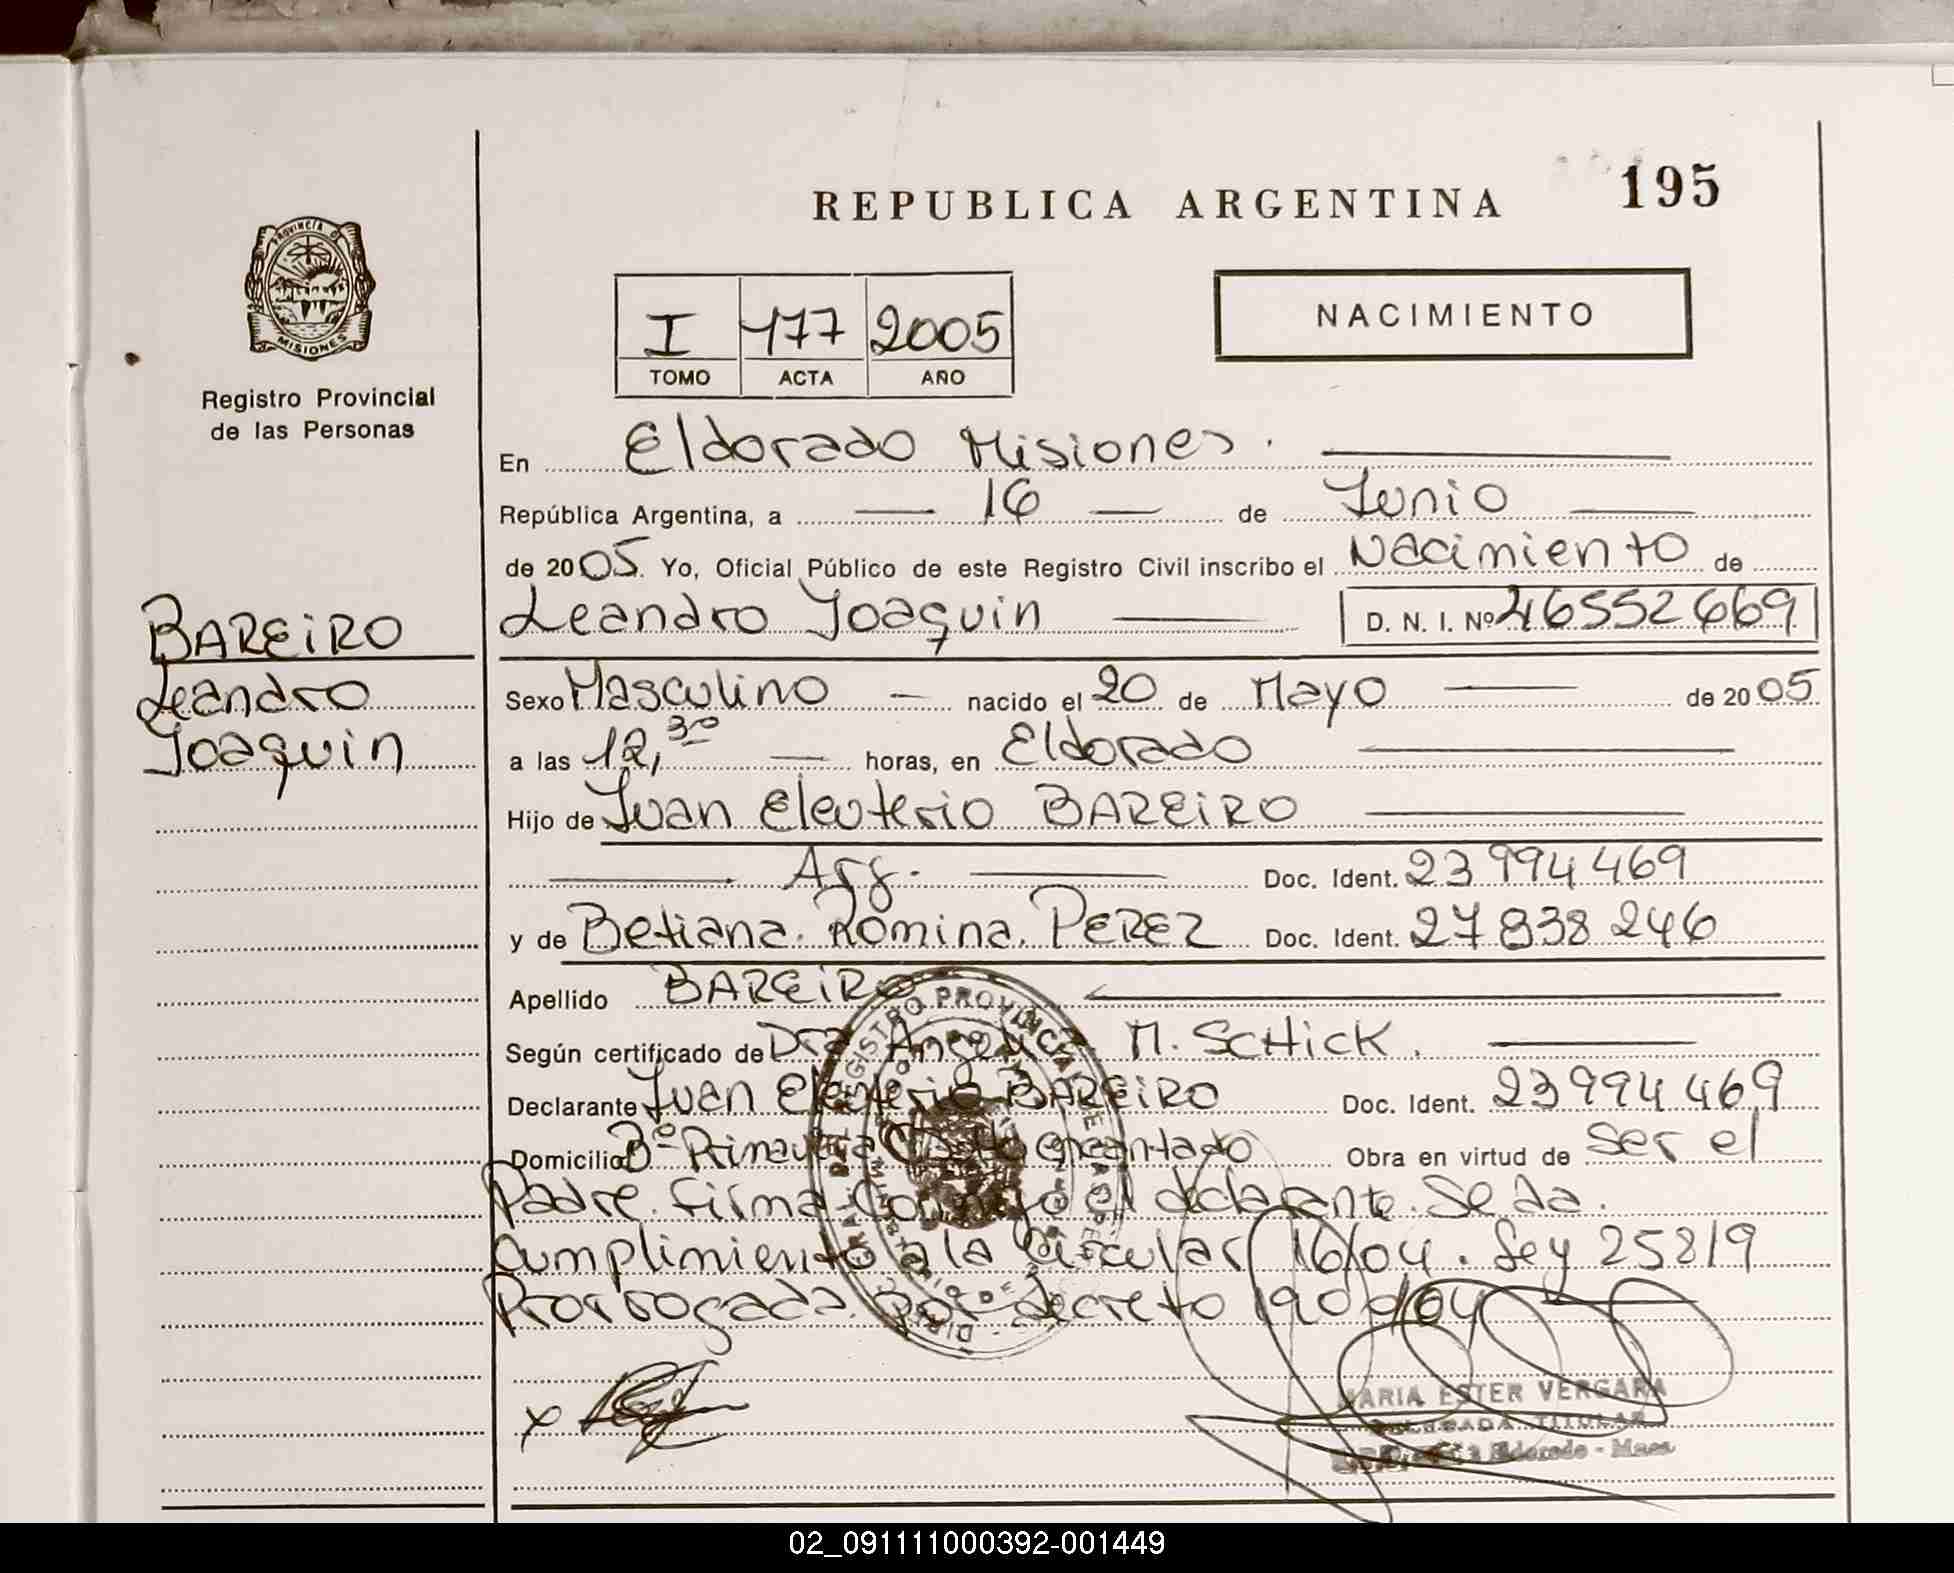 REPUBLICA ARGENTINA
195
PROVINCIA DE
MISIONES
Registro Provincial
de las Personas
I 177 2005
TOMO ACTA AÑO
NACIMIENTO
En Eldorado Misiones.
República Argentina, a 16 de Junio
de 2005. Yo, Oficial Público de este Registro Civil inscribo el Nacimiento de
Leandro Joaquin D. N. I. Nº 46552669
BAREIRO
Leandro
Joaquin
Sexo Masculino nacido el 20 de Mayo de 2005
a las 12,30 horas, en Eldorado
Hijo de Juan Eleuterio BAREIRO
Arg. Doc. Ident. 23994469
y de Betiana Romina PEREZ Doc. Ident. 27838246
Apellido BAREIRO
Según certificado de Dra Angelica M. SCHICK.
Declarante Juan Eleuterio BAREIRO Doc. Ident. 23994469
Domicilio Bº Primavera encantado Obra en virtud de ser el
Padre. firma el declarante. Se da
cumplimiento a la Circular 16/04. Ley 25819
Prorrogada por decreto 190 /04
X
REGISTRO PROVINCIAL DE LAS
MARIA ESTER VERGARA
DELEGADA TITULAR
Eldorado - Mnes
02_091111000392-001449